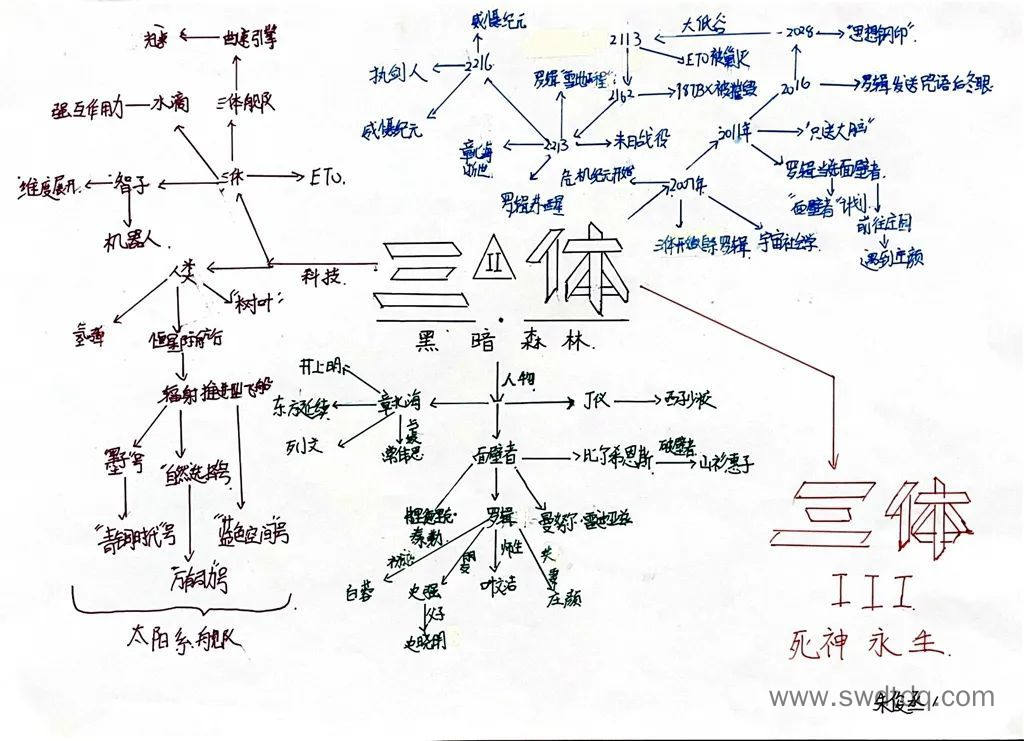 光速
曲速引擎
强互作用力
水滴
三体舰队
维度展开
智子
三体
ETO
机器人
人类
科技
氢弹
恒星际航行
"树叶"
辐射推进型飞船
"自然选择"号
"青铜时代"号
"蓝色空间"号
太阳系舰队
威慑纪元
2216
执剑人
威慑纪元
2113
大低谷
2028
"思想钢印"
罗辑"雪地工程"
ETO被氰灭
2162
187J3X1被摧毁
2016
罗辑发送咒语后冬眠
2213
末日战役
章北海
罗辑苏醒
危机纪元开始
2007年
2011年
"只送大脑"
罗辑当选面壁者
"面壁者"计划
前往庄园
遇到庄颜
罗辑
宇宙社会学
三 II 体
黑暗森林
人物
井上明
东方延续
章北海
列文
常伟思
丁仪
西子
面壁者
比尔希恩斯
破壁者
山杉惠子
泰勒
罗辑
曼努尔·雷迪亚兹
白蓉
史强
朋友
师生
叶文洁
夫妻
庄颜
父子
史晓明
三体
III
死神永生
朱俊丞
www.swdtdq.com